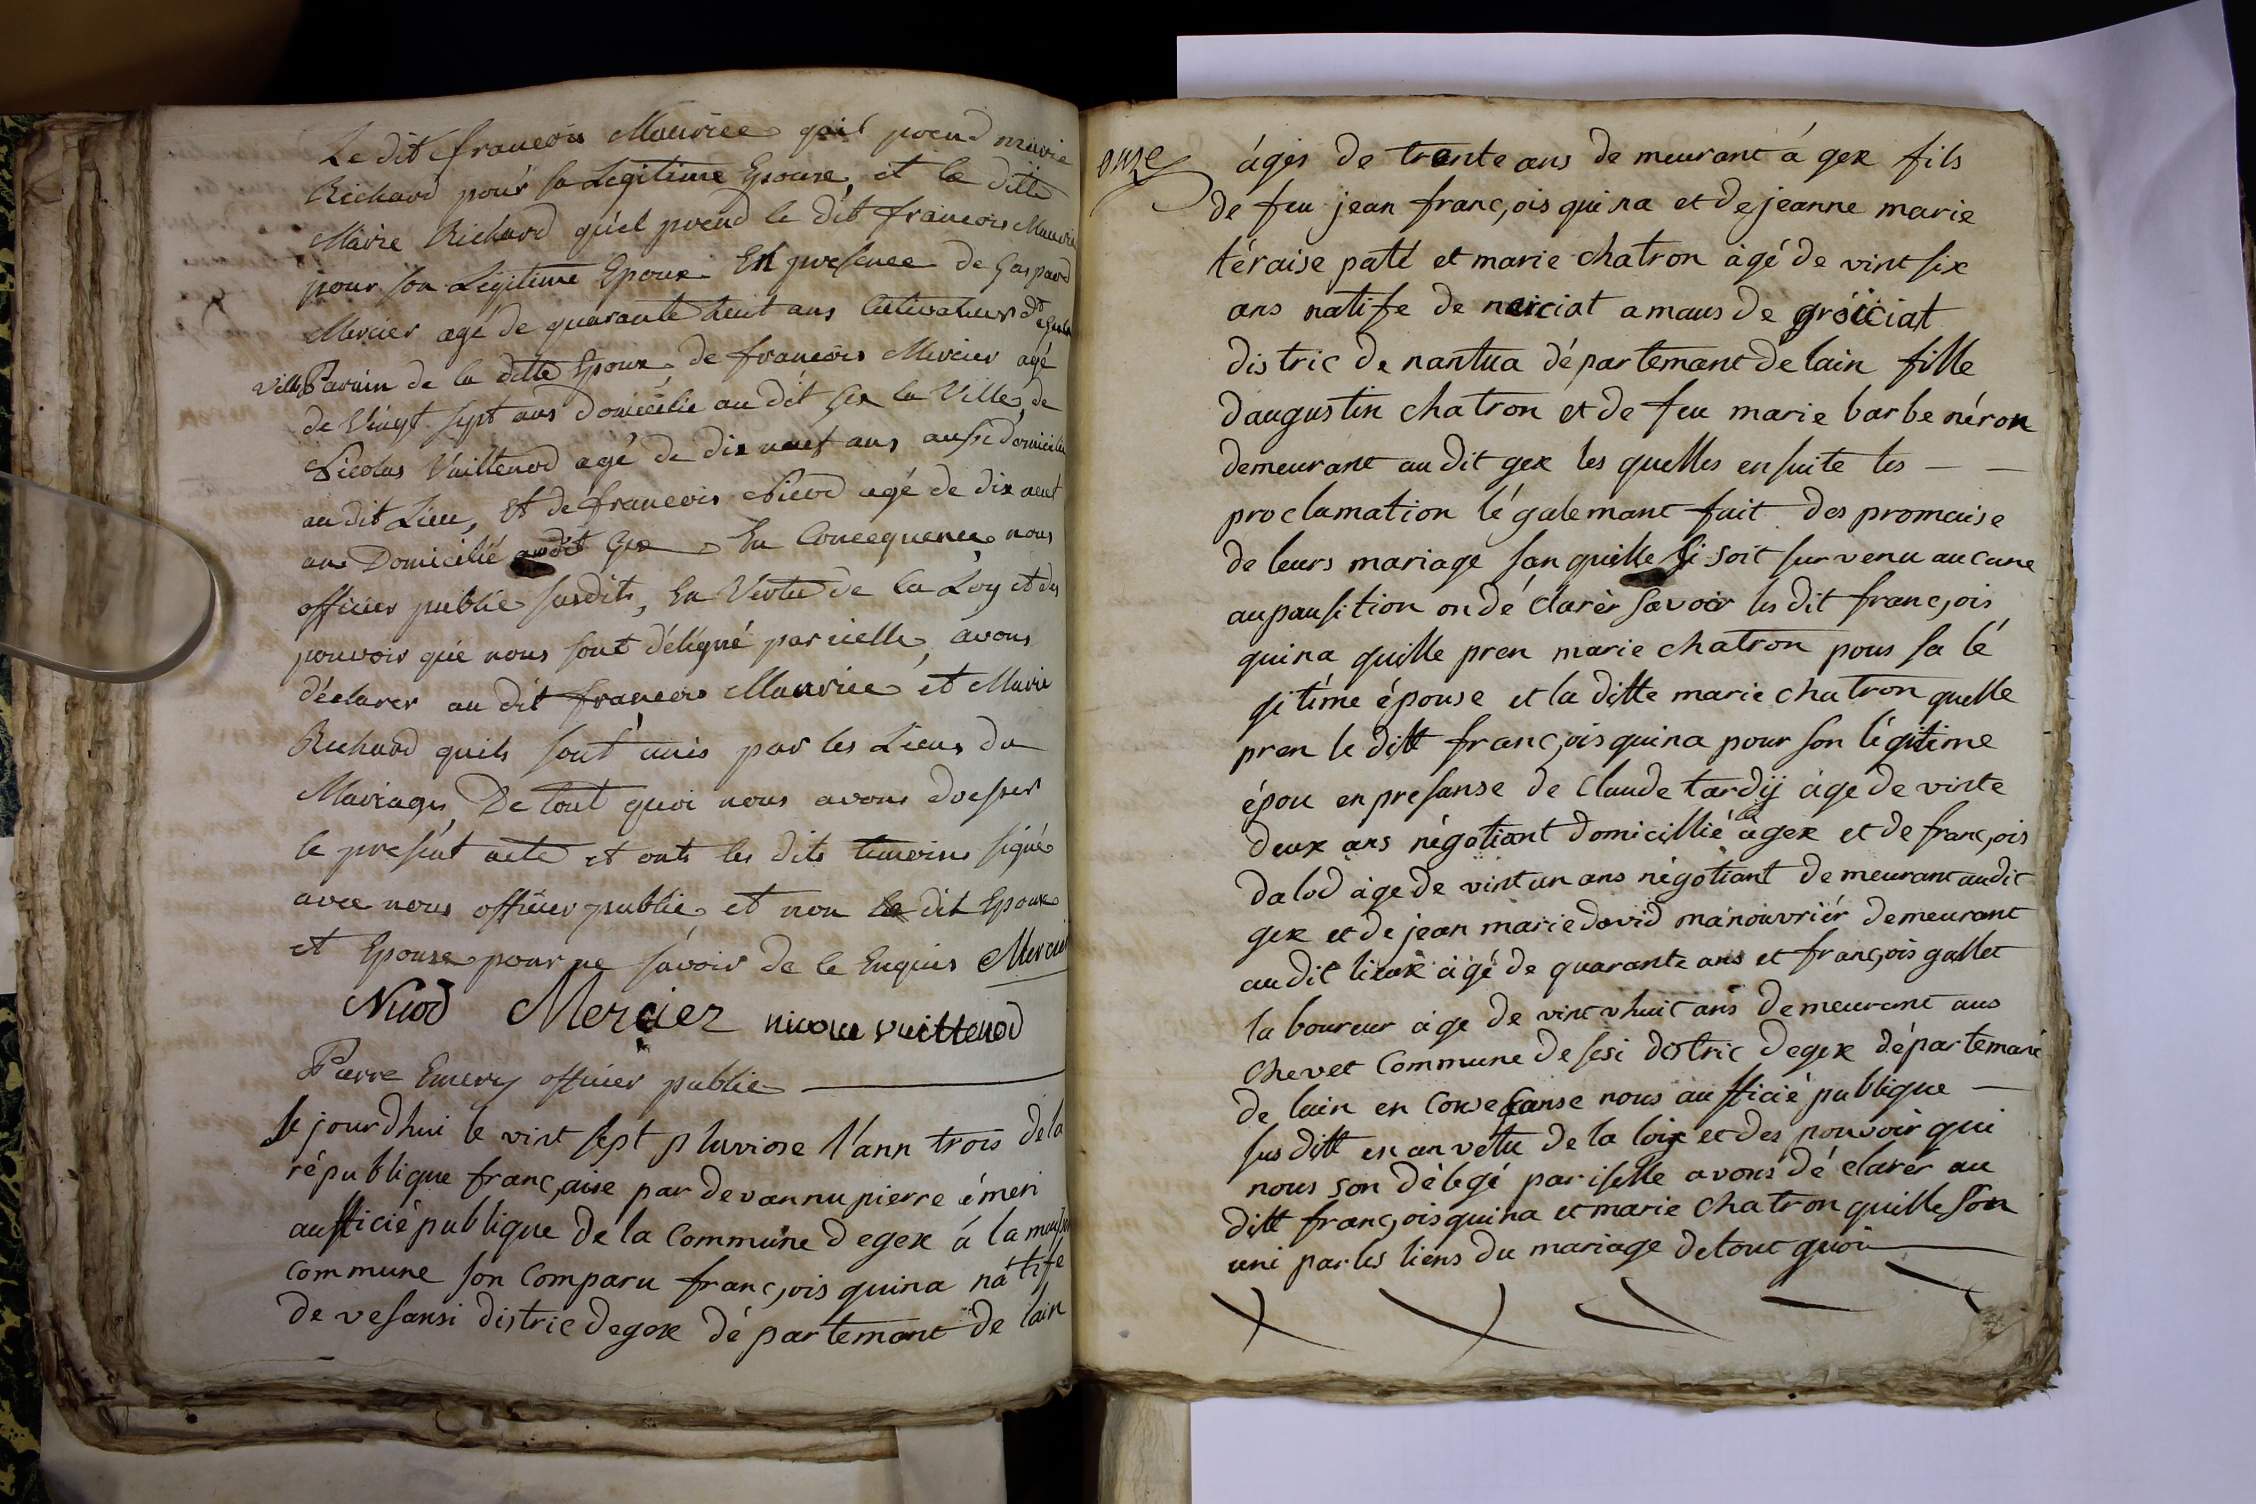 Le dit francois Maurice qu'il prend marie
Richard pour sa Legitime Epouse, et la ditte
Marie Richard qu'el prend le dit francois Maurice
pour son Légitime Epoux En presence de Gaspard
Mercier agé de quarante huit ans Cultivateur
ville Parain de la ditte Epouse de francois Mercier agé
de Vingt sept ans domicilié au dit Gex la Ville, de
Nicolas Vuillenod agé de dix neuf ans aussi domicilié
au dit Lieu, et de francois Nicod agé de dix neuf
ans Domicilié au dit Gex En Concequence nous
officier public susdits, En Vertu de la Loy et des
pouvoir qui nous sont délégué par icelle, avons
déclarer au dit francois Maurice et Marie
Richard quils sont unis par les Liens du
Mariage, De tout quoi nous avons dresser
le present acte et onts les dits temoins signé
avec nous officier public, et non le dit Epoux
et Epouse pour ne savoir de ce Enquis Mercier
Nicod Mercier nicolas vuittenod
Pierre Emery officier public
Se jourdhui le vint sept pluviose l'ann trois de la
république franc,aise par devannu pierre émeri
aufficié publique de la Commune de gex á la maison
Commune son Comparu franc,ois quina nátife
de vesansi distric de gex dé partemant de lain
onze
ágés de trente ans de meurant á gex fils
de feu jean franc,ois quina et de jeanne marie
téraise paté et marie chatron àgé de vint six
ans natife de neiciat amaus de gróiciat
distric de nantua dé partemant de lain fille
daugustin chatron et de feu marie barbe néron
demeurant au dit gex les quelles ensuite les
proclamation lé galemant fait des promaise
de leurs mariage san quille si soit survenu aucune
aupausition on dé clarèr savoir les dit franc,ois
quina quille pren marie chatron pous sa lé
gitime épouse et la ditte marie chatron quelle
pren le ditt franc,ois quina pour son légitime
épou en presanse de Claude tardij àge de vinte
deux ans négotiant domicillié à gex et de franc,ois
dalod àge de vint un ans négotiant demeurant audit
gex et de jean marie david manouvriér demeurant
au dit lieux àgé de quarante ans et franc,ois gallet
la boureur àge de vint vhuit ans demeurant aus
Chevet Commune de sesi distric de gex départemant
de lain en Conseqanse nous aufficié publique
sus ditt en an vétu de la loix et des pouvoir qui
nous son délégé par iselle avons dé clarér au
ditt franc,ois quina et marie Chatron quille son
uni par les liens du mariage de tout quoi